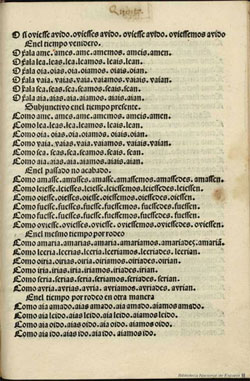 O si oviesse avido. oviesses avido. oviesse avido. oviessemos avido
Enel tiempo venidero.
Oxala ame. ames. ame. amemos. ameis. amen.
Oxala lea. leas. lea. leamos. leais. lean.
Oxala oia. oias. oia. oiamos. oiais. oian.
Oxala vaia. vaias. vaia. vaiamos. vaiais. vaian.
Oxala sea. seas. sea. seamos. seais. sean.
Oxala aia. aias. aia. aiamos. aiais. aian.
Subjunctivo enel tiempo presente.
Como ame. ames. ame. amemos. ameis. amen.
Como lea. leas. lea. leamos. leais. lean.
Como oia. oias. oia. oiamos. oiais. oian.
Como vaia. vaias. vaia. vaiamos. vaiais. vaian.
Como sea. seas. sea. seamos. seais. sean.
Como aia. aias. aia. aiamos. aiais. aian.
Enel passado no acabado.
Como amasse. amasses. amasse. amassemos. amassedes. amassen.
Como leiesse. leiesses. leiesse. leiessemos. leiessedes. leiessen.
Como oiesse. oiesses. oiesse. oiessemos. oiessedes. oiessen.
Como fuesse. fuesses. fuesse. fuessemos. fuessedes. fuessen.
Como fuesse. fuesses. fuesse. fuessemos. fuessedes. fuessen.
Como oviesse. oviesses. oviesse. oviessemos. oviessedes. oviessen.
Enel mesmo tiempo por rodeo
Como amaria. amarias. amaria. amariamos. amariades. amariã.
Como leeria. leerias. leeria. leeriamos. leeriades. leerian.
Como oiria. oirias. oiria. oiriamos. oiriades. oirian.
Como iria. irias. iria. iriamos. iriades. irian.
Como seria. serias. seria. seriamos. seriades. serian.
Como avria. avrias. avria. avriamos. avriades. avrian.
Enel tiempo por rodeo en otra manera
Como aia amado. aias amado. aia amado. aiamos amado.
Como aia leido. aias leido. aia leido. aiamos leido.
Como aia oido. aias oido. aia oido. aiamos oido.
Como aia ido. aias ido. aia ido. aiamos ido.
Biblioteca Nacional de España